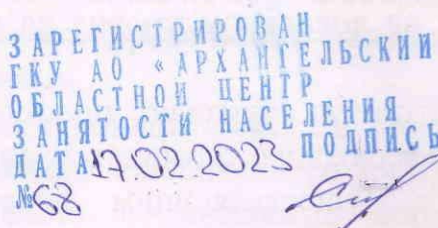 ЗАРЕГИСТРИРОВАН
ГКУ АО «АРХАНГЕЛЬСКИЙ
ОБЛАСТНОЙ ЦЕНТР
ЗАНЯТОСТИ НАСЕЛЕНИЯ
ДАТА 17.02.2023 ПОДПИСЬ
№68